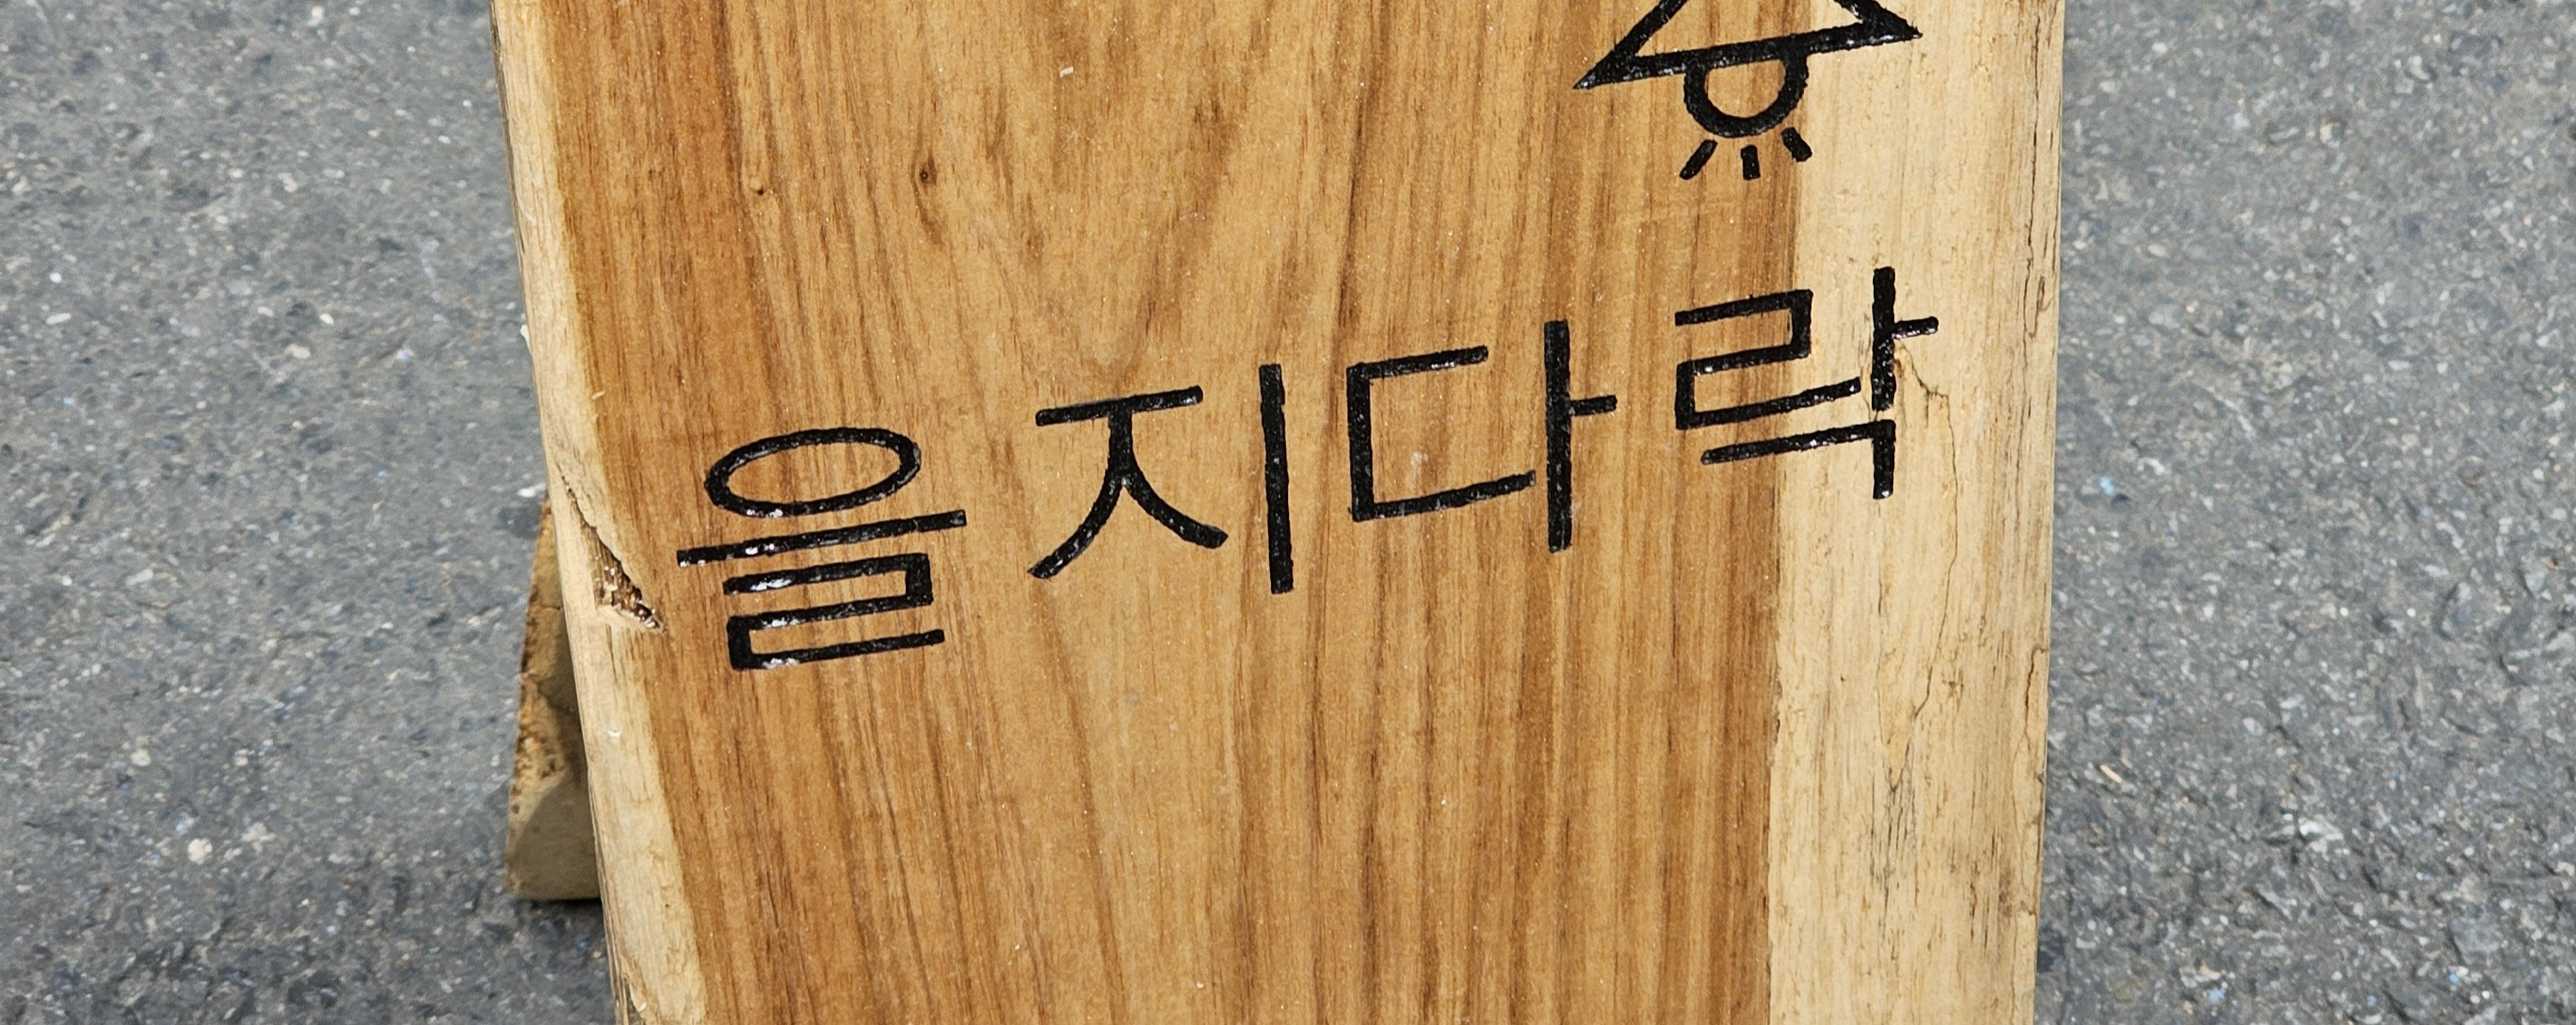 을지다락